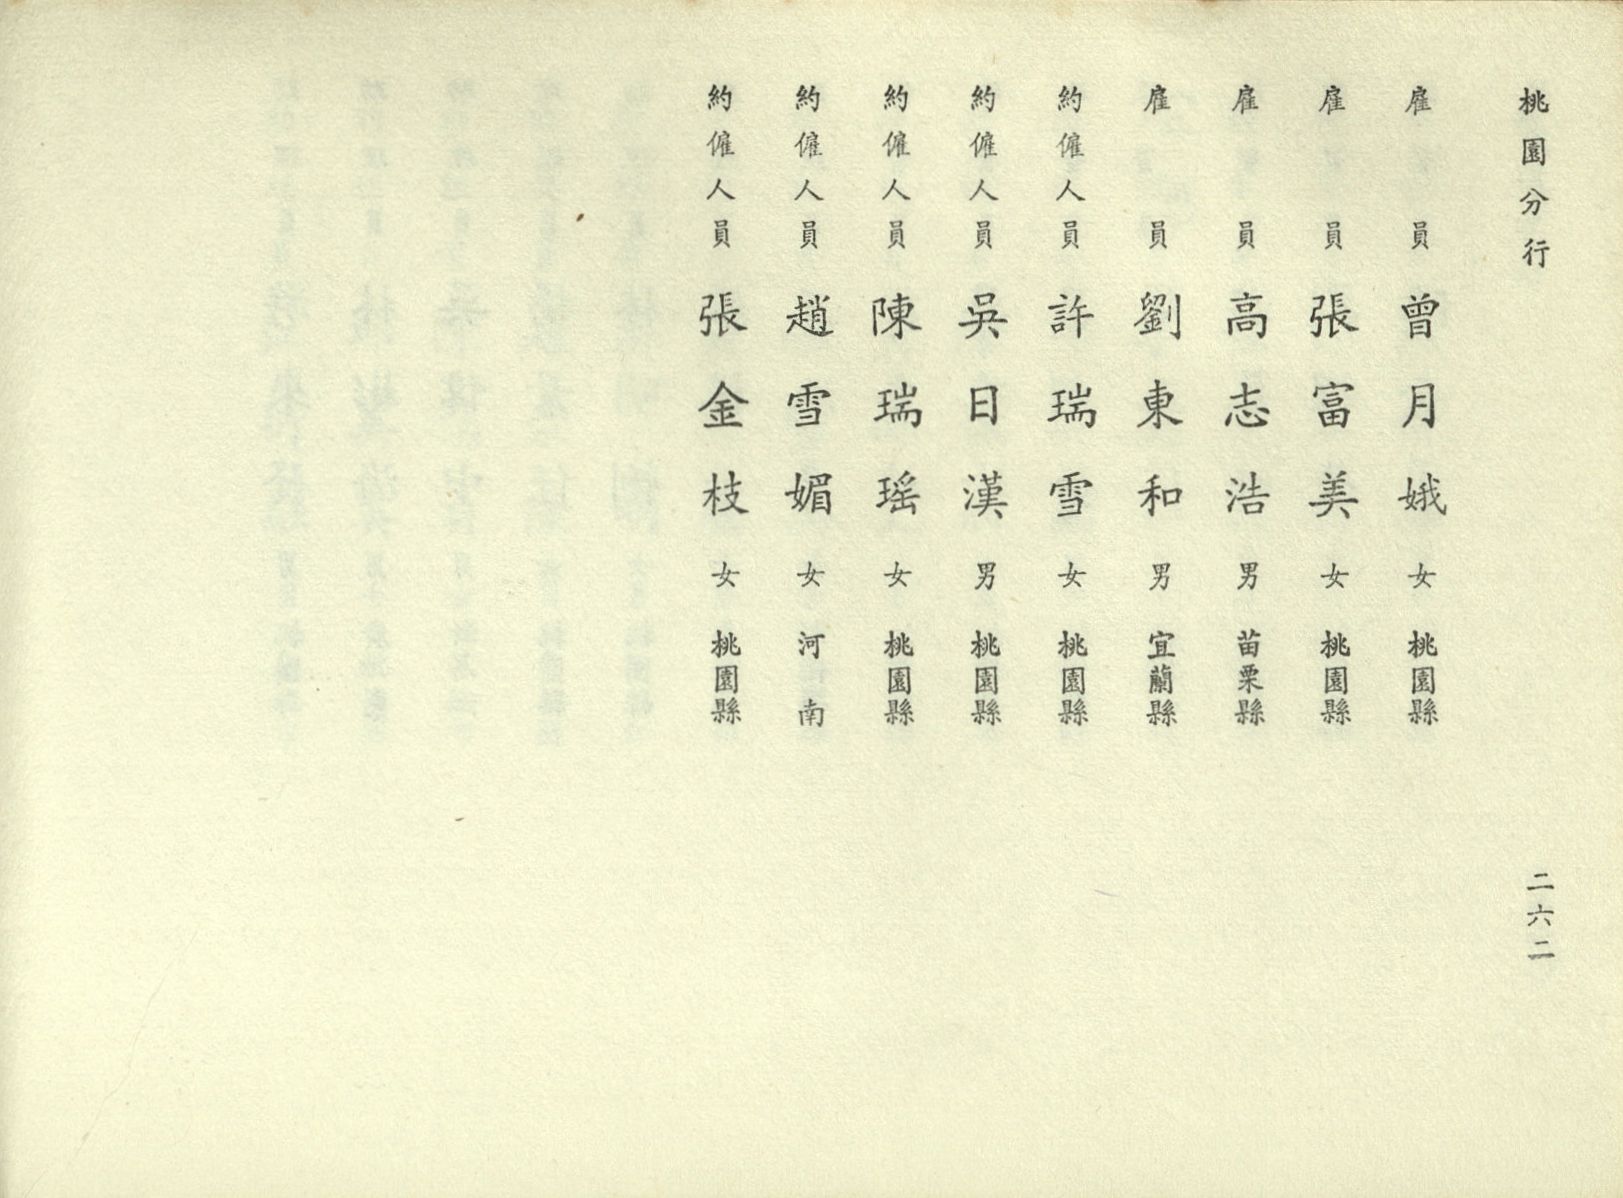 桃園分行
二六二
雇員 曾月娥 女 桃園縣
雇員 張富美 女 桃園縣
雇員 高志浩 男 苗栗縣
雇員 劉東和 男 宜蘭縣
約僱人員 許瑞雪 女 桃園縣
約僱人員 吳日漢 男 桃園縣
約僱人員 陳瑞瑤 女 桃園縣
約僱人員 趙雪媚 女 河南
約僱人員 張金枝 女 桃園縣